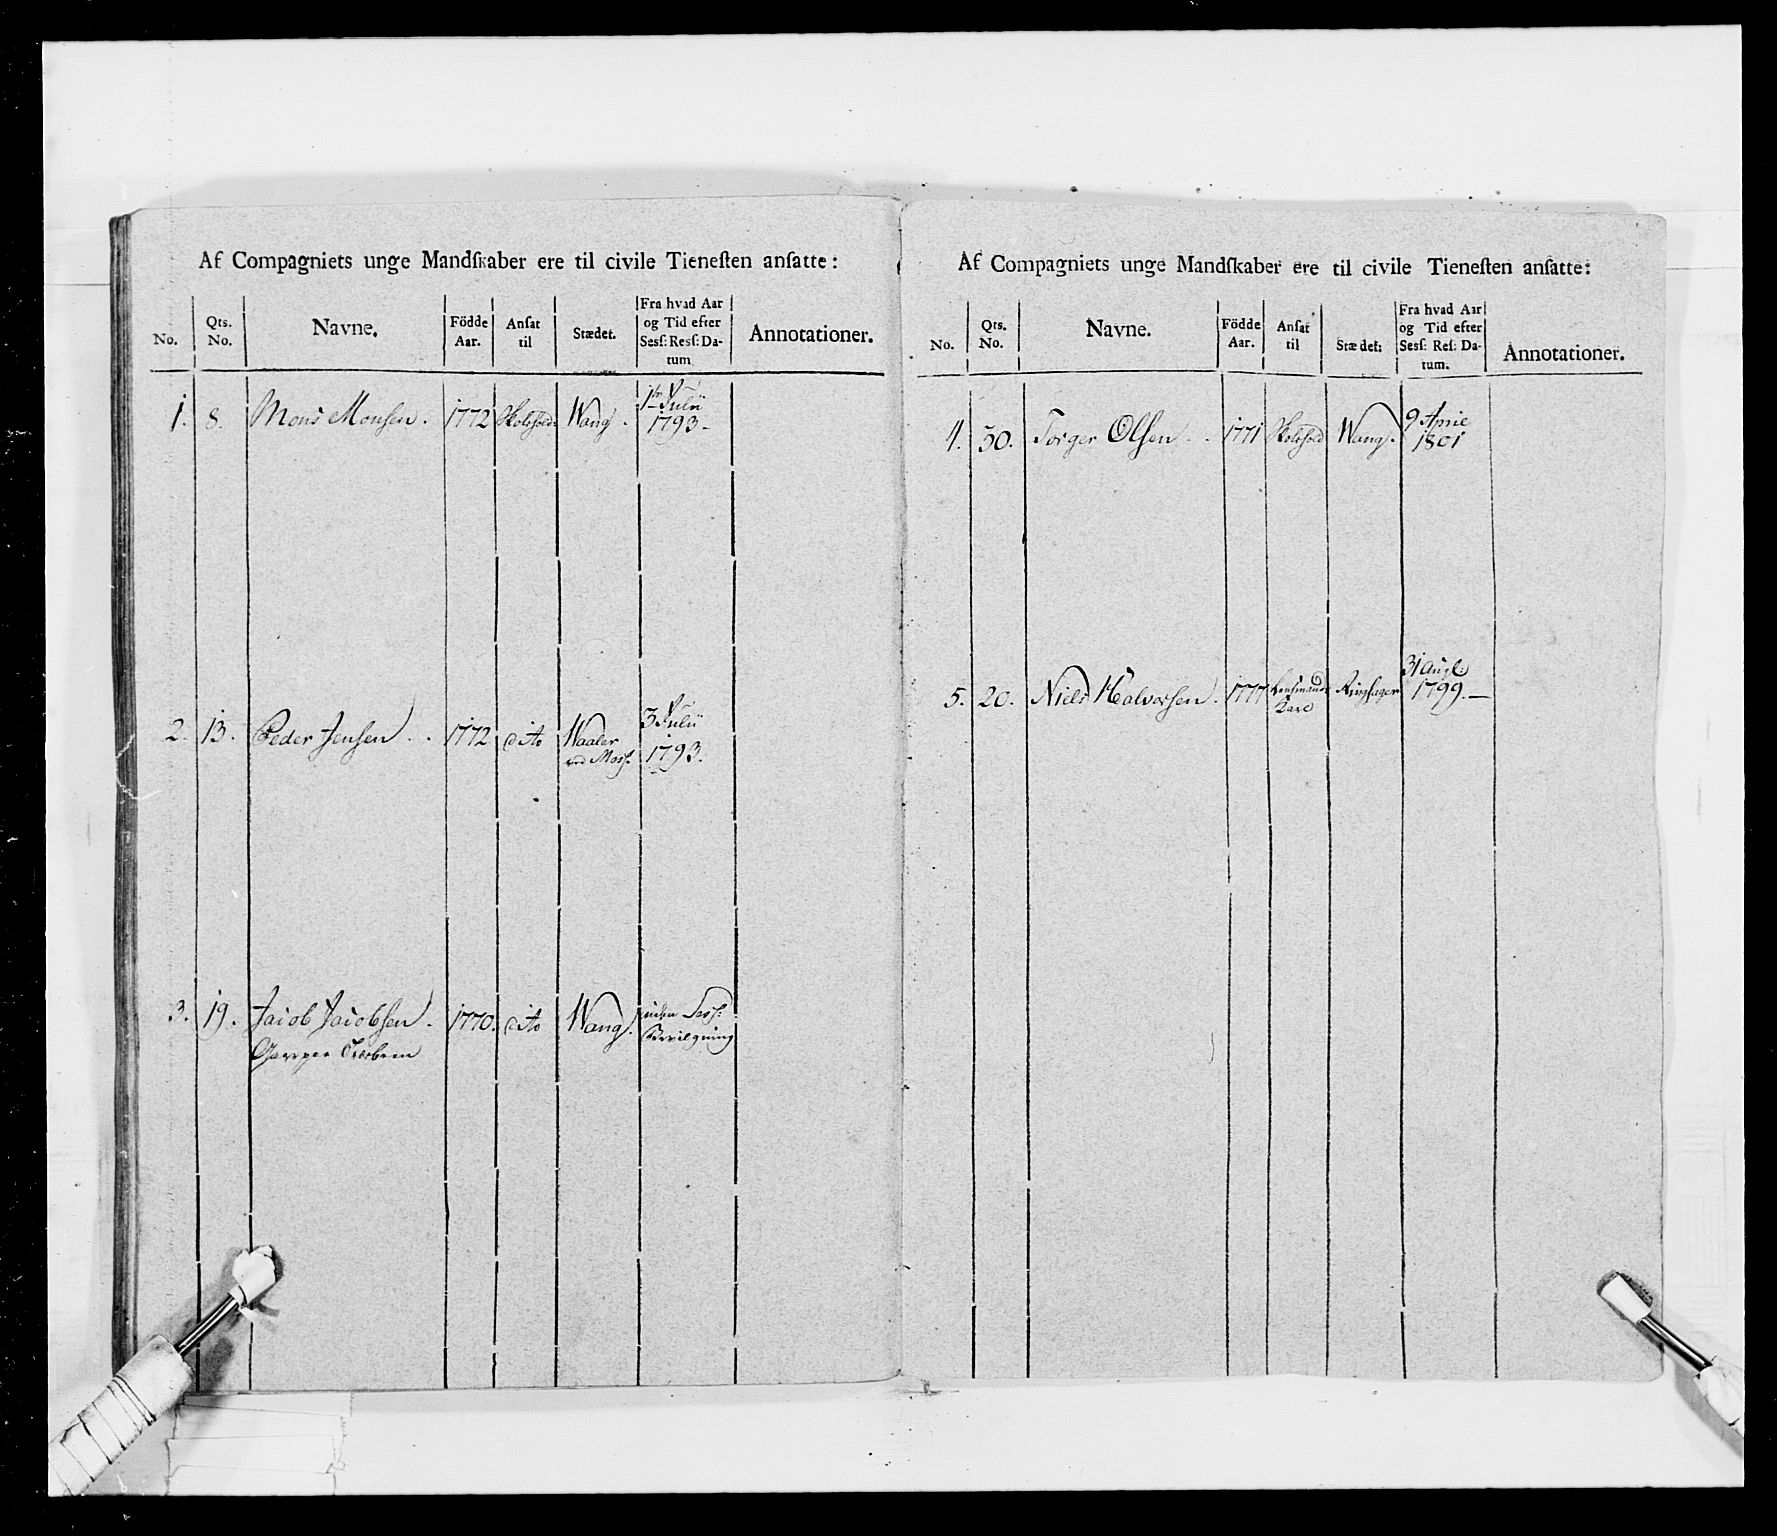 Af Compagniets unge Mandſkaber ere til civile Tieneſten anſatte:
No. Qts. No. Navne. Födde Aar. Anſat til Stædet. Fra hvad Aar og Tid efter Sesſ: Resſ: Datum Annotationer.
1. 8. Mons Monsen. 1772 Skolehold. Wang. 1ste Julii 1793.
2. 13. Peder Jensen 1772 dito Waaler ved Moss 3 Julii 1793.
3. 19. Jacob Jacobsen. 1770. dito Wang. uden Sess: Bevilgning
Af Compagniets unge Mandſkaber ere til civile Tieneſten anſatte:
No. Qts. No. Navne. Födde Aar. Anſat til Stædet: Fra hvad Aar og Tid efter Sesſ: Reſ: Datum. Annotationer.
4. 30. Torger Olsen 1771 Skolehold Wang. 9 April 1801
5. 20. Niels Halvorsen. 1777 Lensmands Karl Ringsager 31 Augt: 1799.